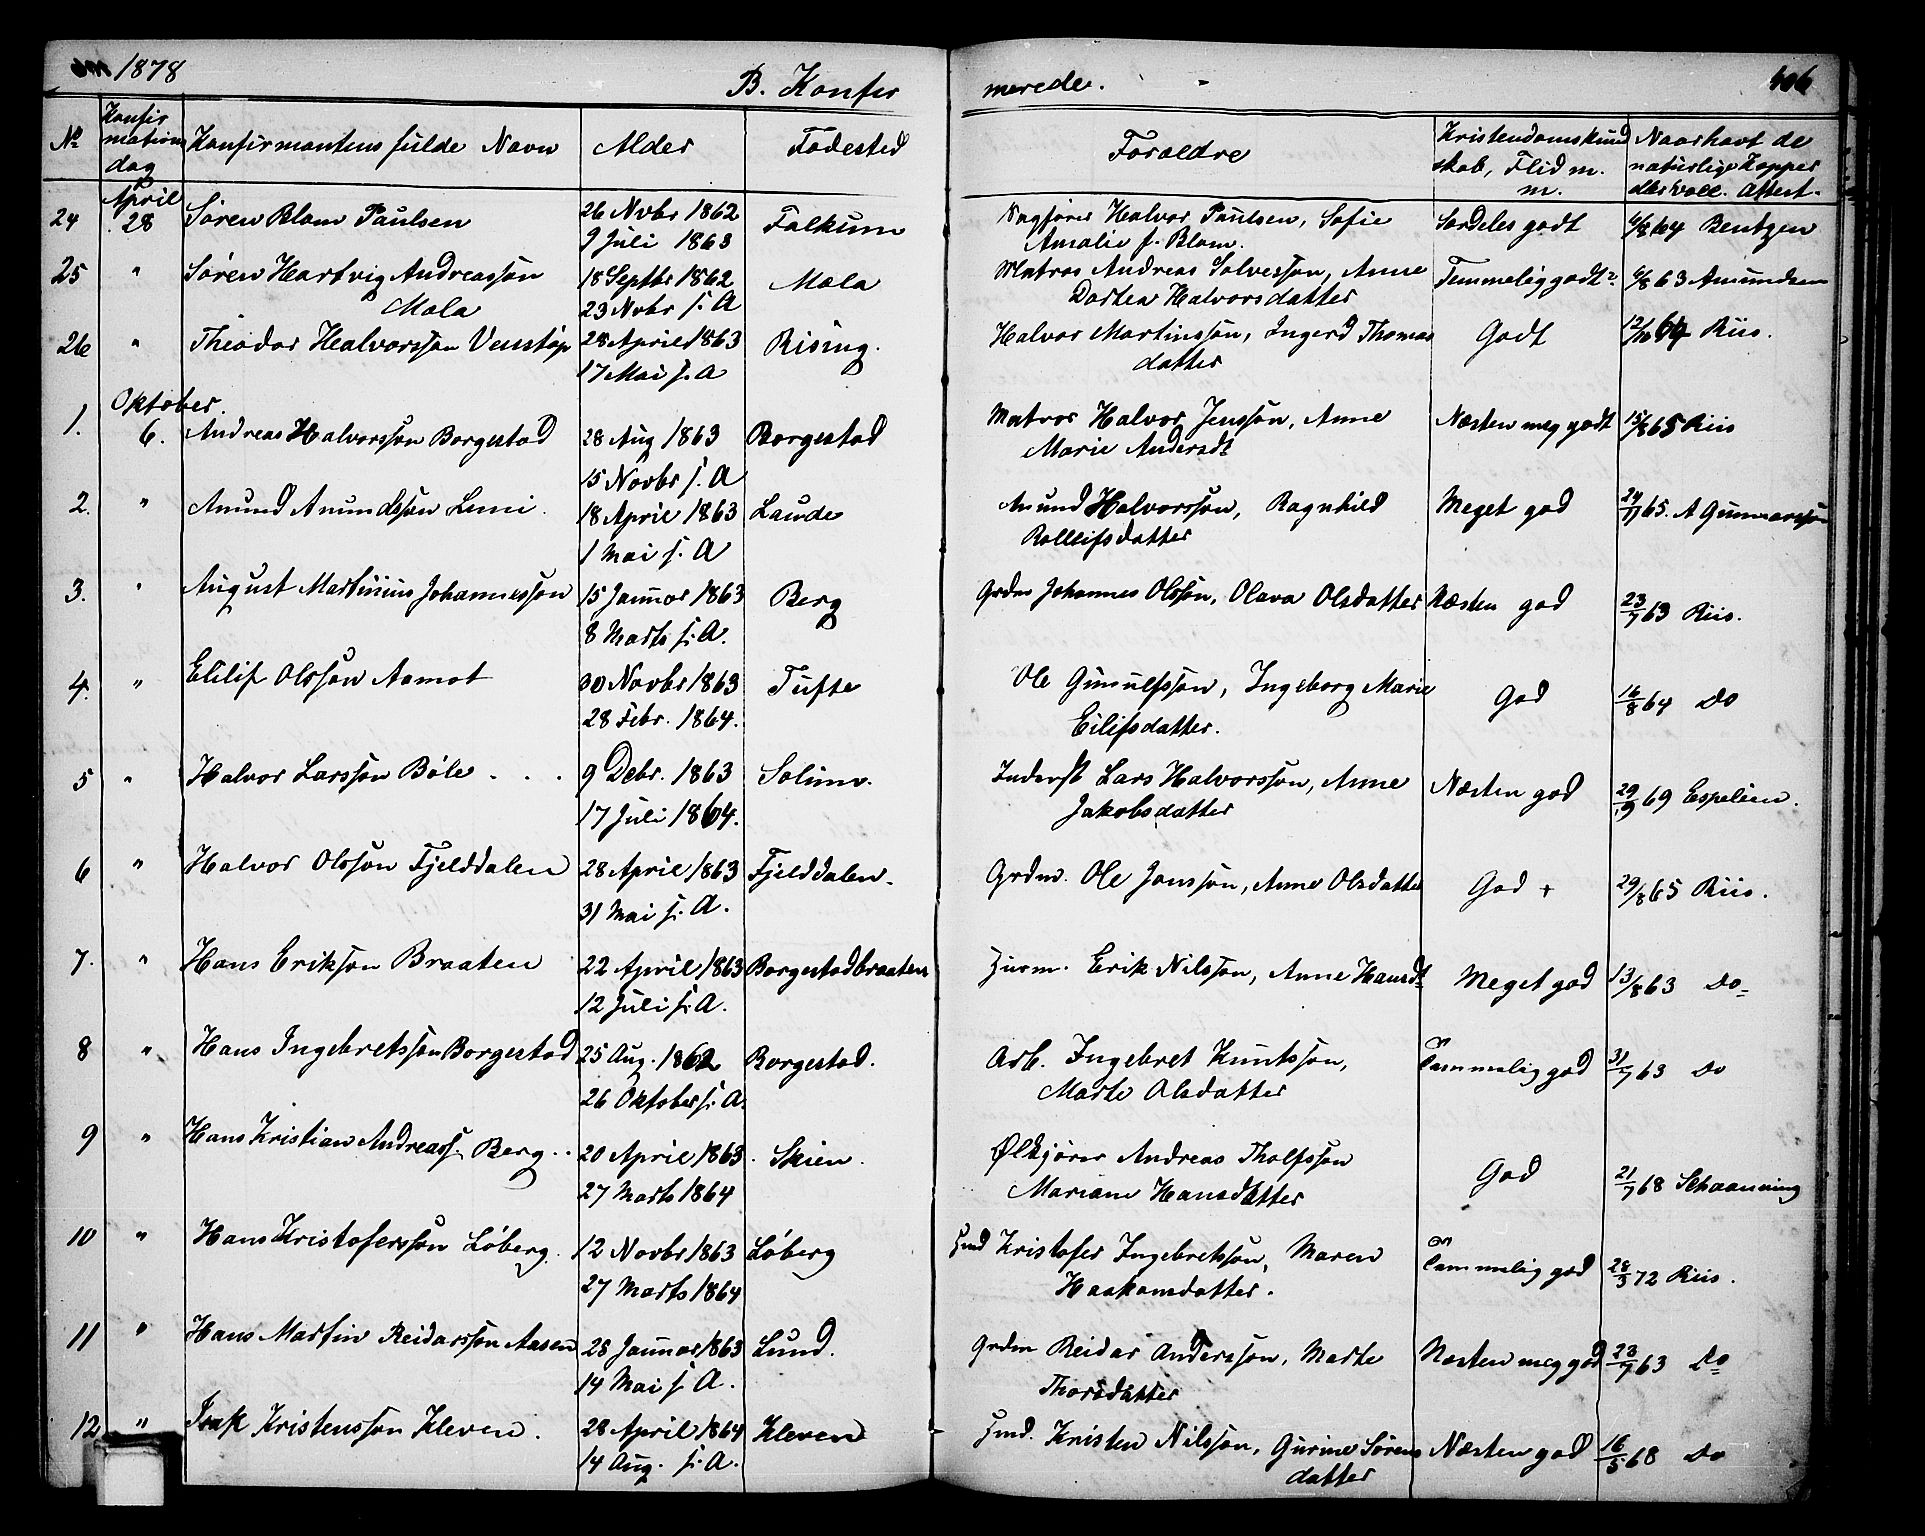 1878
B. Konfir
merede.
406
No
Konfir
mations
dag
Konfirmantens fulde Navn
Alder
Fødested
Forældre
Kristendomskund
skab, Flid m.
m.
Naar havt de
naturlige Kopper
eller vacc. Attest.
24 April 28 Søren Blom Paulsen 26 Novbr 1862 Falkum Sagfører Halvor Paulsen, Sofie Særdeles godt 4/8 64 Bentzen
9 Juli 1863 Amalie f. Blom.
25 " Søren Hartvig Andreassøn 18 Septbr 1862 Mæla Matros Andreas Solvessøn, Anne Temmelig godt 6/8 63 Amundsen
Mæla 23 Novbr s. A Dortea Halvorsdatter
26 " Theodor Halvorssøn Venstøp 28 April 1863 Rising. Halvor Martinssøn, Ingerd Thomas Godt 12/10 64 Riis.
17 Mai s. A datter
Oktober.
1. 6. Andreas Halvorssøn Borgestad 28 Aug 1863 Borgestad Matros Halvor Jenssøn, Anne Næsten meg godt 15/8 65 Riis
15 Novbr s. A Marie Andersdt
2. " Anund Anundssøn Lemi. 18 April 1863 Laude Anund Halvorssøn, Ragnhild Meget god 24/11 65. A Gunnarssøn
1 Mai s. A Rolleifsdatter
3. " August Martinius Johannessøn 15 Januar 1863 Berg Grdm Johannes Olssøn, Olava Olsdatter Næsten god 23/7 63 Riis.
8 Marts s. A.
4. " Eilif Olssøn Aamot 30 Novbr 1863 Tufte Ole Gunulfssøn, Ingeborg Marie God 16/8 64 Do
28 Febr. 1864. Eilifsdatter.
5 " Halvor Larssøn Bøle 9 Debr. 1863 Solum. Inderst Lars Halvorssøn, Anne Næsten god 29/9 69 Espelien.
17 Juli 1864. Jakobsdatter
6 " Halvor Olssøn Fjelddalen 28 April 1863 Fjelddalen. Grdm. Ole Jonssøn, Anne Olsdatter God + 29/8 65 Riis.
31 Mai s. A.
7. " Hans Erikssøn Braaten 22 April 1863 Borgestadbraaten Husm. Erik Nilssøn, Anne Hansdt Meget god 13/8 63 Do
12 Juli s. A.
8 " Hans Ingebretssøn Borgestad 25 Aug. 1862 Borgestad. Arb. Ingebret Knutssøn, Temmelig god 31/7 63 Do
26 Oktober s. A. Marte Olsdatter
9 " Hans Kristian Andreass. Berg 20 April 1863 Skien. Ølkjører Andreas Tholfssøn God 21/7 68 Schaanning
27 Marts 1864 Mariam Hansdatter
10 " Hans Kristoferssøn Løberg. 12 Novbr 1863 Løberg Hmd Kristofer Ingebretssøn, Maren Temmelig god 28/5 72 Riis.
27 Marts 1864 Haakonsdatter.
11 " Hans Martin Reidarssøn Aasen 28 Januar 1863 Lund. Grdm Reidar Anderssøn, Marte Næsten meg god 23/7 63 Do
14 Mai s. A. Thorsdatter
12 " Isak Kristenssøn Kleven. 28 April 1864 Kleven Hmd. Kristen Nilssøn, Gurine Sørens Næsten god 16/5 68 Do
14 Aug. s. A. datter